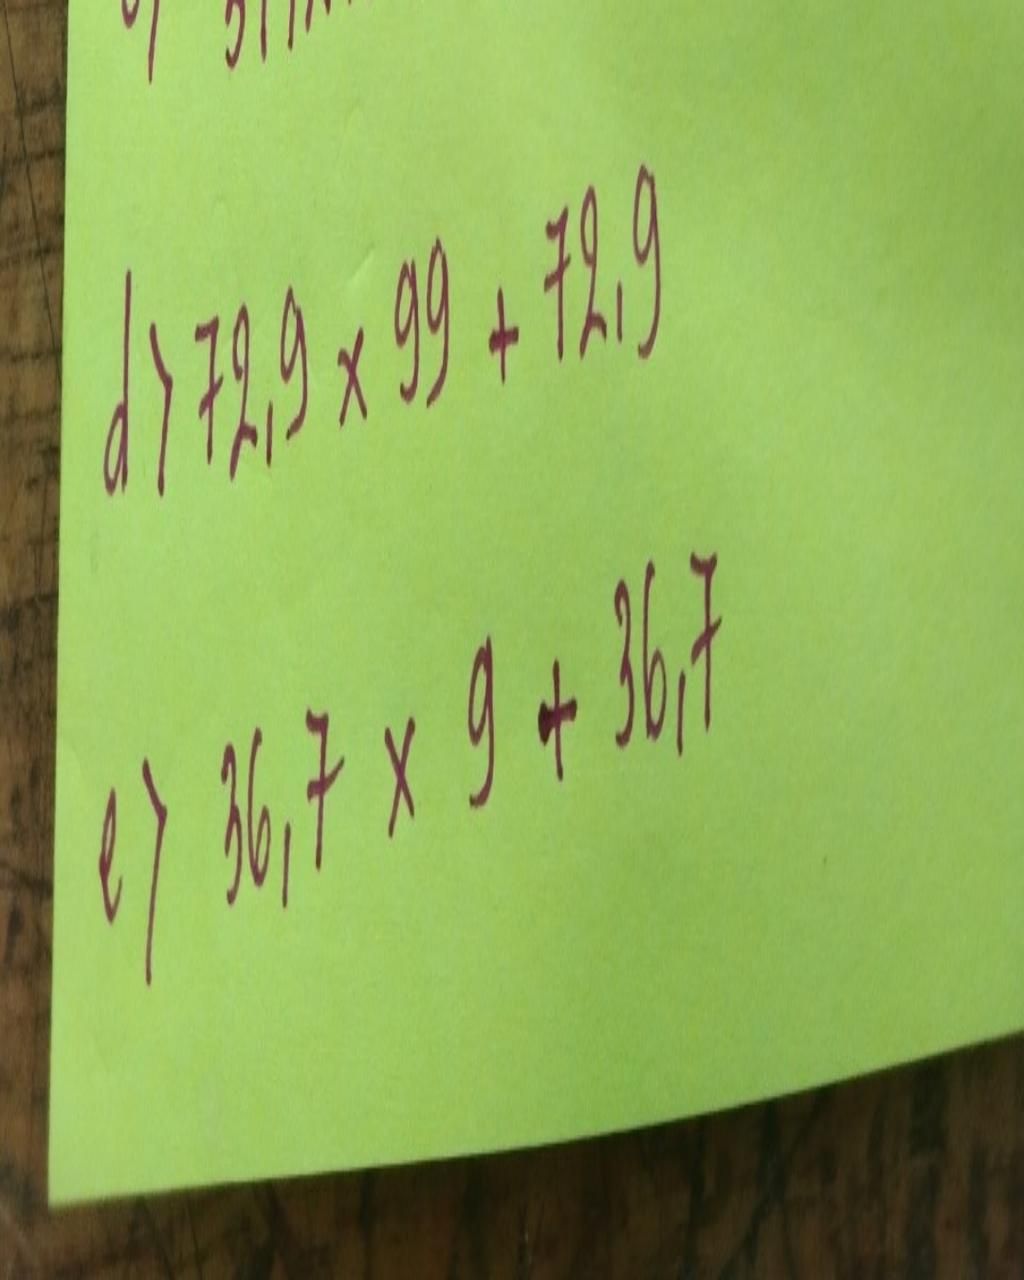 d) 72,9 x 99 + 72,9
e) 36,7 x 9 + 36,7